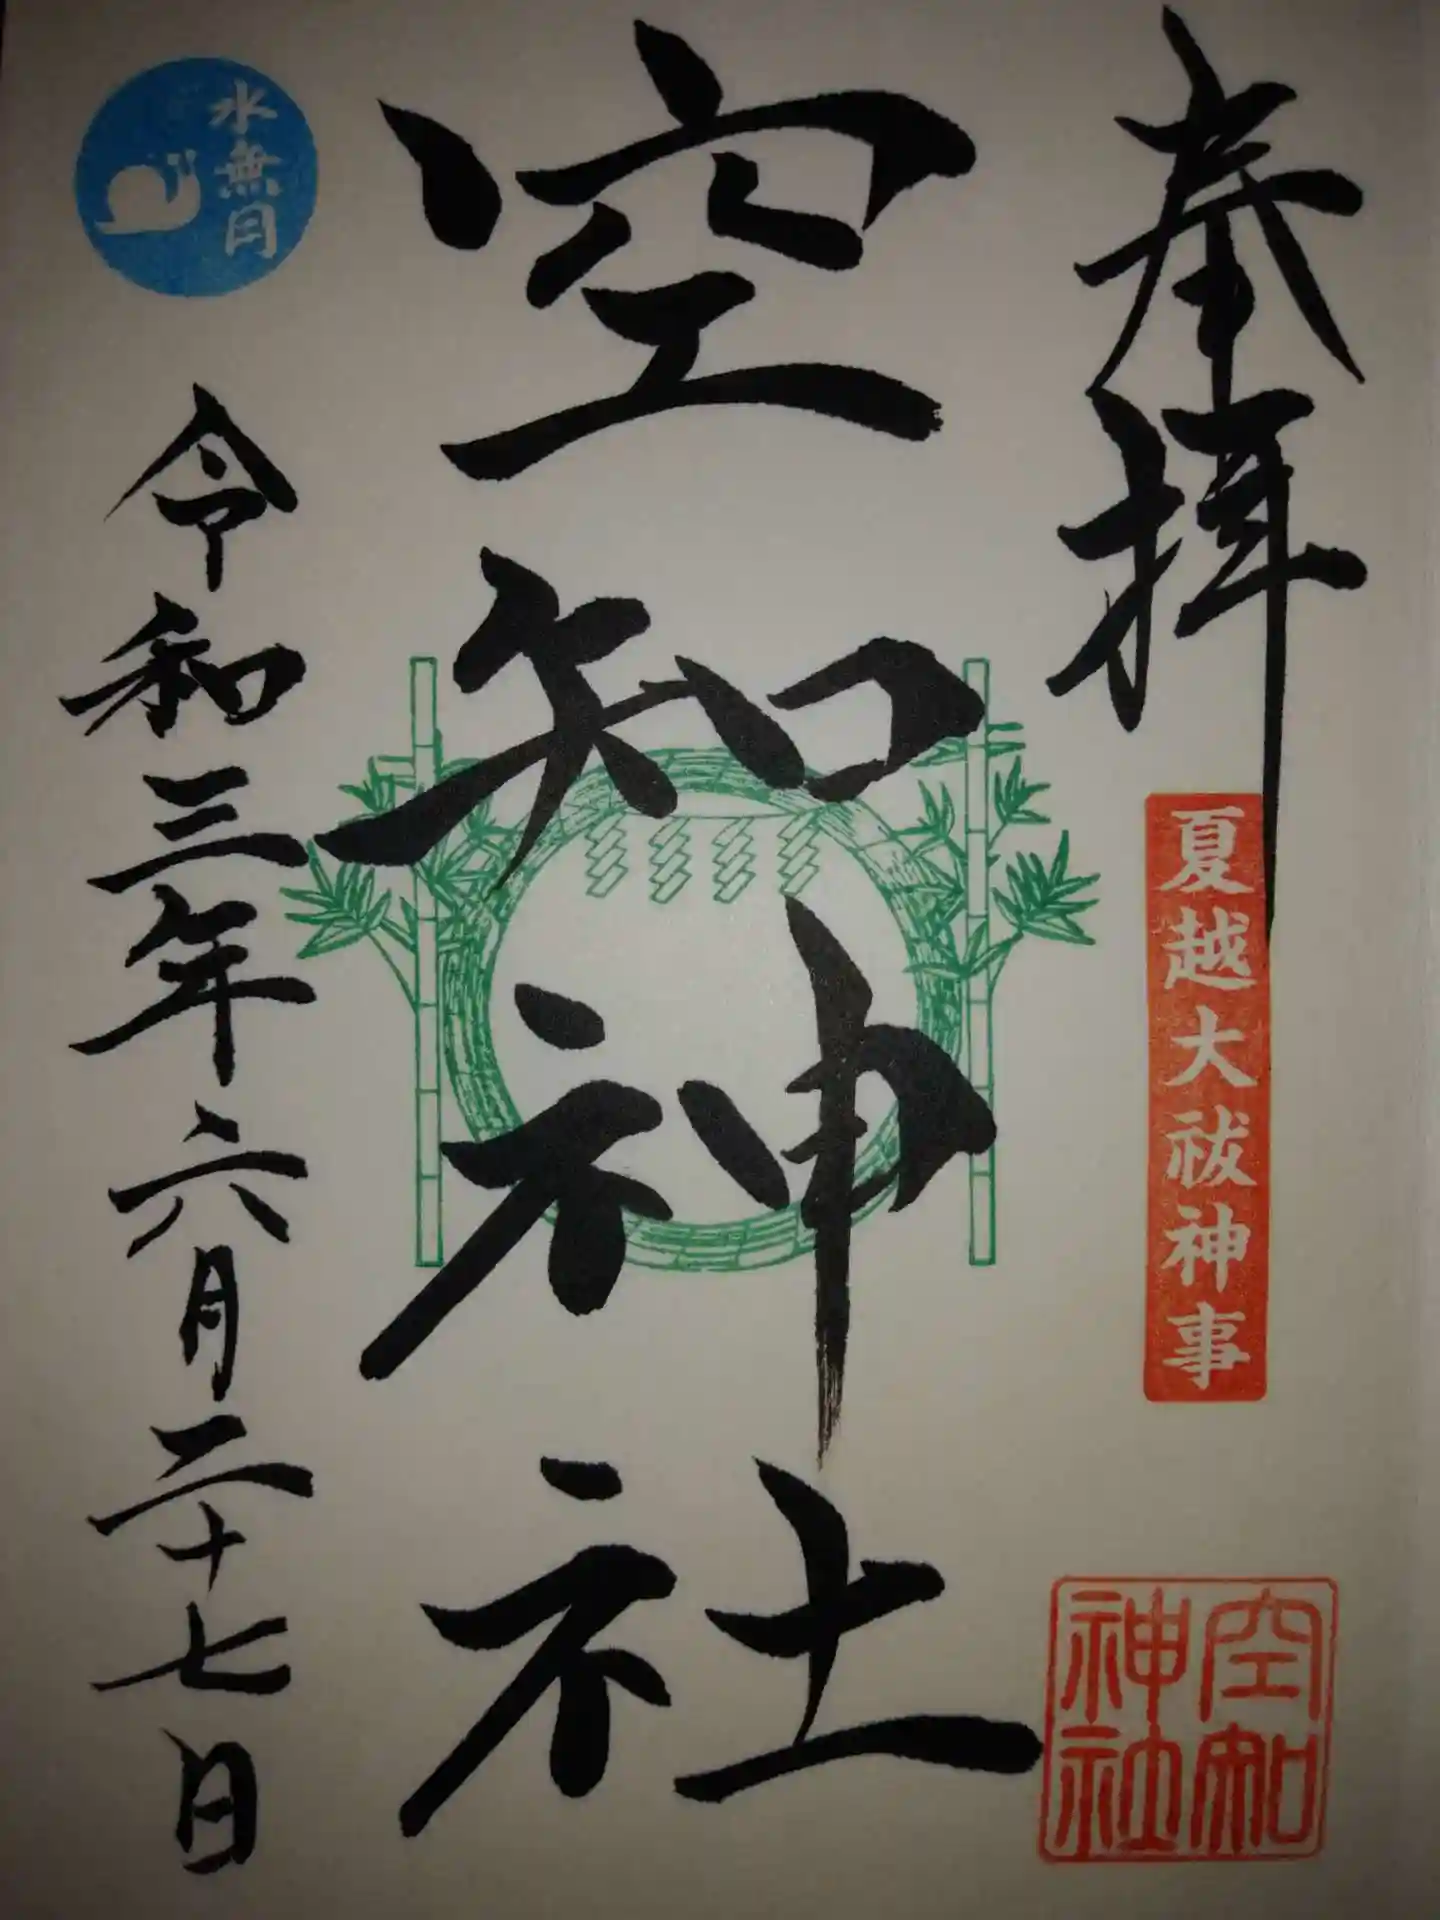 奉拝
夏越大祓神事
空知
神社
空知神社
水無月
令和三年六月二十七日